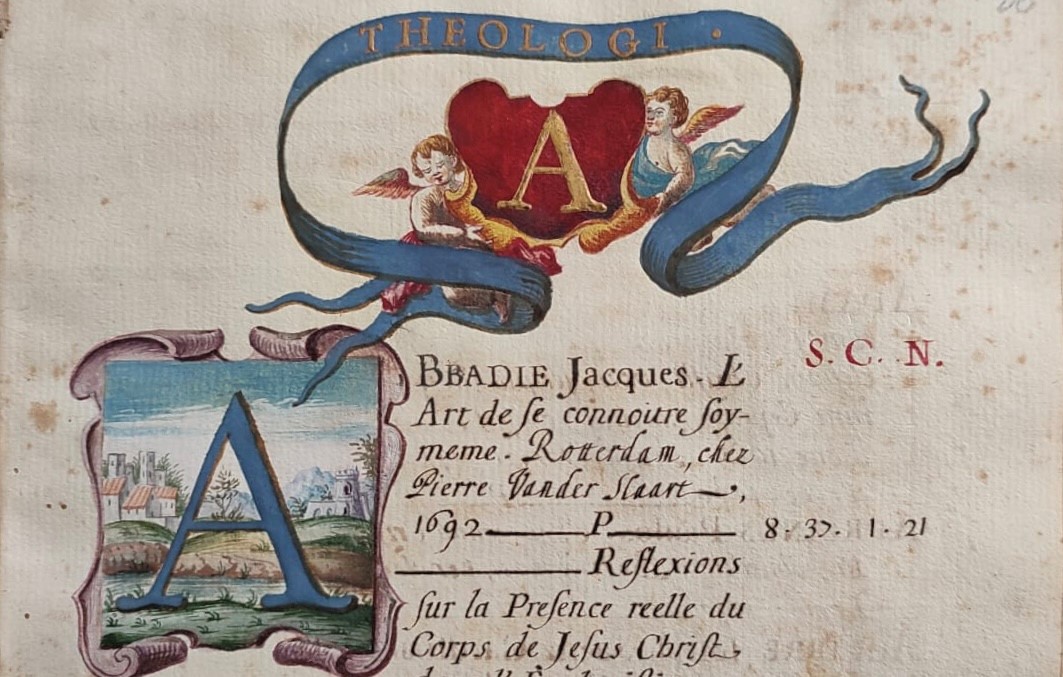 THEOLOGI .
A
S. C. N.
ABBADIE Jacques. L'
Art de ſe connoitre ſoy-
meme. Rotterdam, chez
Pierre Vander Slaart,
1692 P 8. 37. 1. 21
Reflexions
ſur la Preſence reelle du
Corps de Jeſus Chriſt,